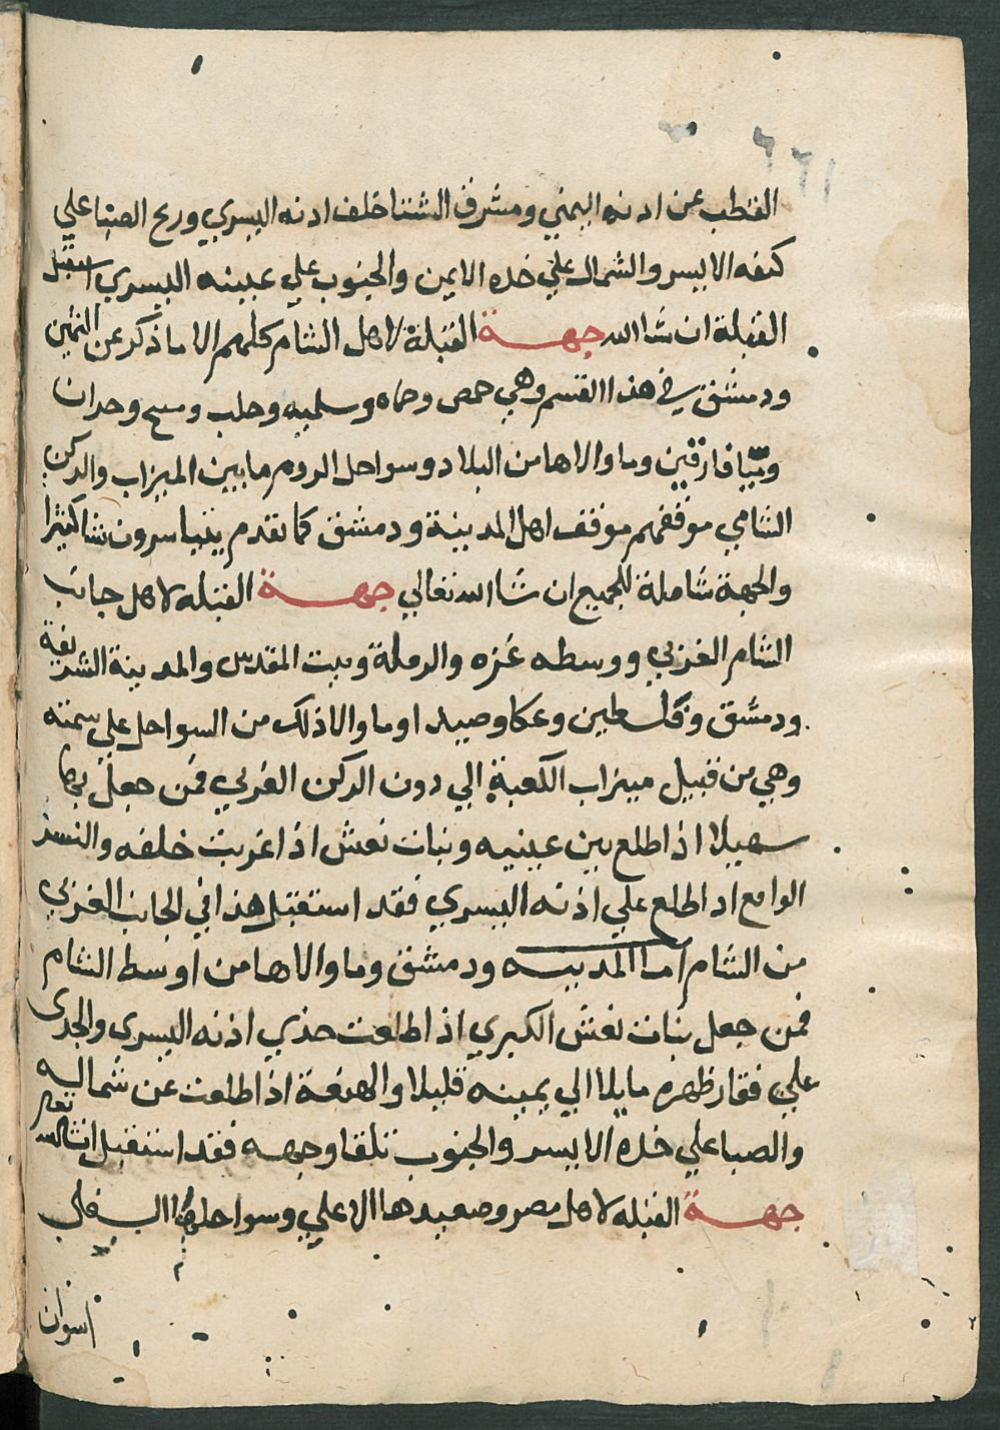 ١٦٦
القطب عن ادنه اليمني ومشرق الشتا خلف ادنه اليسري وريح الصبا علي
كتفه الايسر والشمال علي خده الايمن والجنوب علي عينه اليسري استقبل
القبلة ان شا الله جهة القبلة لاهل الشام كلهم الا ما ذكر عن
ودمشق في هذا القسم وهي حمص وحماه وسلميه وحلب ومنبج وحران
وميافارقين وما والاها من البلاد وسواحل الروم ما بين الميزاب والركن
الشامي موقفهم موقف اهل المدينة ودمشق كما تقدم يتياسرون شا كثيرا
والجهة شاملة للجميع ان شا الله تعالي جهة القبله لاهل جانب
الشام الغربي ووسطه غزه والرملة وبيت المقدس والمدينة الشريفة
ودمشق وفلسطين وعكا وصيدا وما والا ذلك من السواحل علي سمته
وهي من قبيل ميزاب الكعبة الي دون الركن الغربي فمن جعل بها
سهيلا اذا طلع بين عينيه وبنات نعش اذا غربت خلفه والنسر
الواقع اذا طلع علي اذنه اليسري فقد استقبل هذا في الجانب الغربي
من الشام اما المدينه ودمشق وما والاها من اوسط الشام
فمن جعل بنات نعش الكبري اذا طلعت حذي اذنه اليسرى والجدى
علي فقار ظهره مايلا الي يمينه قليلا والهنعة اذا طلعت عن شماله
والصبا علي خده الايسر والجنوب تلقا وجهه فقد استقبل ان شا الله تعالى
جهة القبله لاهل مصر وصعيدها الاعلي وسواحلها السفلي
اسوان